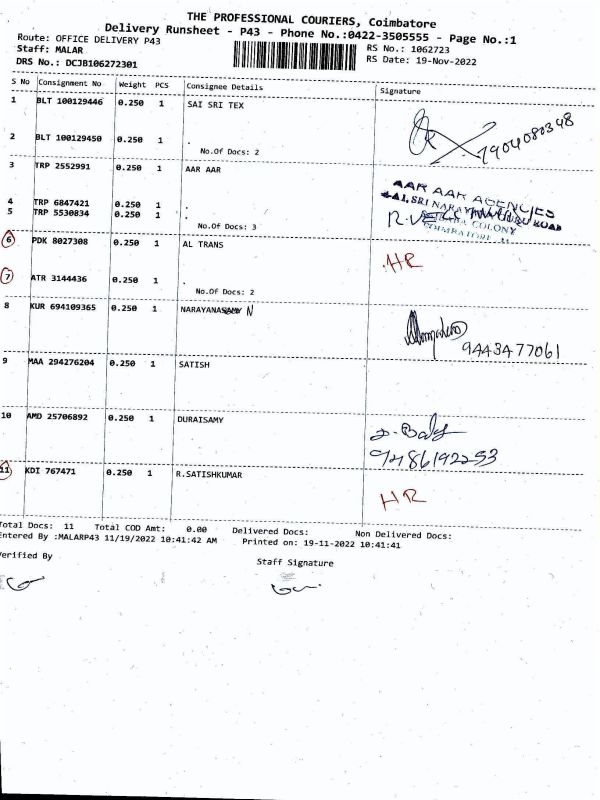 THE PROFESSIONAL COURIERS, Coimbatore
Delivery Runsheet - P43 - Phone No.:0422-3505555 - Page No.:1
Route: OFFICE DELIVERY P43
Staff: MALAR RS No.: 1062723
DRS No.: DCJB106272301 RS Date: 19-Nov-2022
S No Consignment No Weight PCS Consignee Details Signature
1 BLT 100129446 0.250 1 SAI SRI TEX
7904080348
2 BLT 100129450 0.250 1 .
No.Of Docs: 2
3 TRP 2552991 0.250 1 AAR AAR
AAR AAR AGENCIES
4 TRP 6847421 0.250 1 .
5 TRP 5530834 0.250 1 .
COLONY
No.Of Docs: 3
6 PDK 8027308 0.250 1 AL TRANS
HR
7 ATR 3144436 0.250 1 .
No.Of Docs: 2
8 KUR 694109365 0.250 1 NARAYANASAMY N
9443477061
9 MAA 294276204 0.250 1 SATISH
10 AMD 25706892 0.250 1 DURAISAMY
11 KDI 767471 0.250 1 R.SATISHKUMAR
HR
Total Docs: 11 Total COD Amt: 0.00 Delivered Docs: Non Delivered Docs:
Entered By :MALARP43 11/19/2022 10:41:42 AM Printed on: 19-11-2022 10:41:41
Verified By Staff Signature